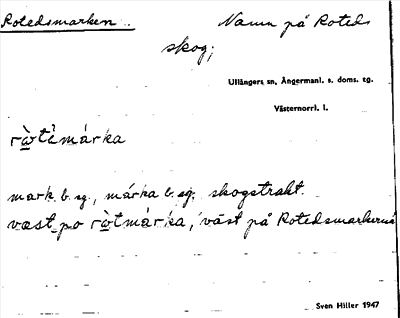 Rotedsmarken..
Namn på Roteds
skog;
Ullångers sn, Ångermanl. s. doms. tg.
Västernorrl. l.
rò̱tèmárka
mark. b. sg., márka b. sg. skogstrakt.
væst po rò̱tmárka, 'väst på Rotedsmarkerna
Sven Hiller 1947